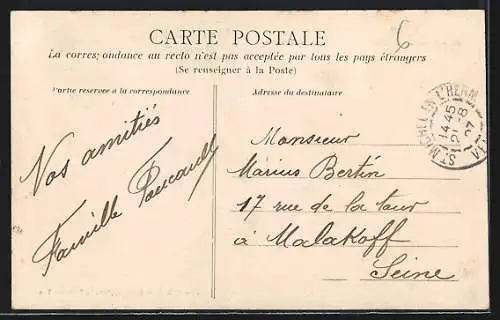 CARTE POSTALE
6
La correspondance au recto n'est pas acceptée par tous les pays étrangers
(Se renseigner à la Poste)
Partie réservée à la correspondance
Adresse du destinataire
Vos amitiés
Famille Foucault
Monsieur
Marius Bertin
17 rue de la tour
à Malakoff
Seine
ST MICHEL EN L'HERM
14 45
21 - 8
07